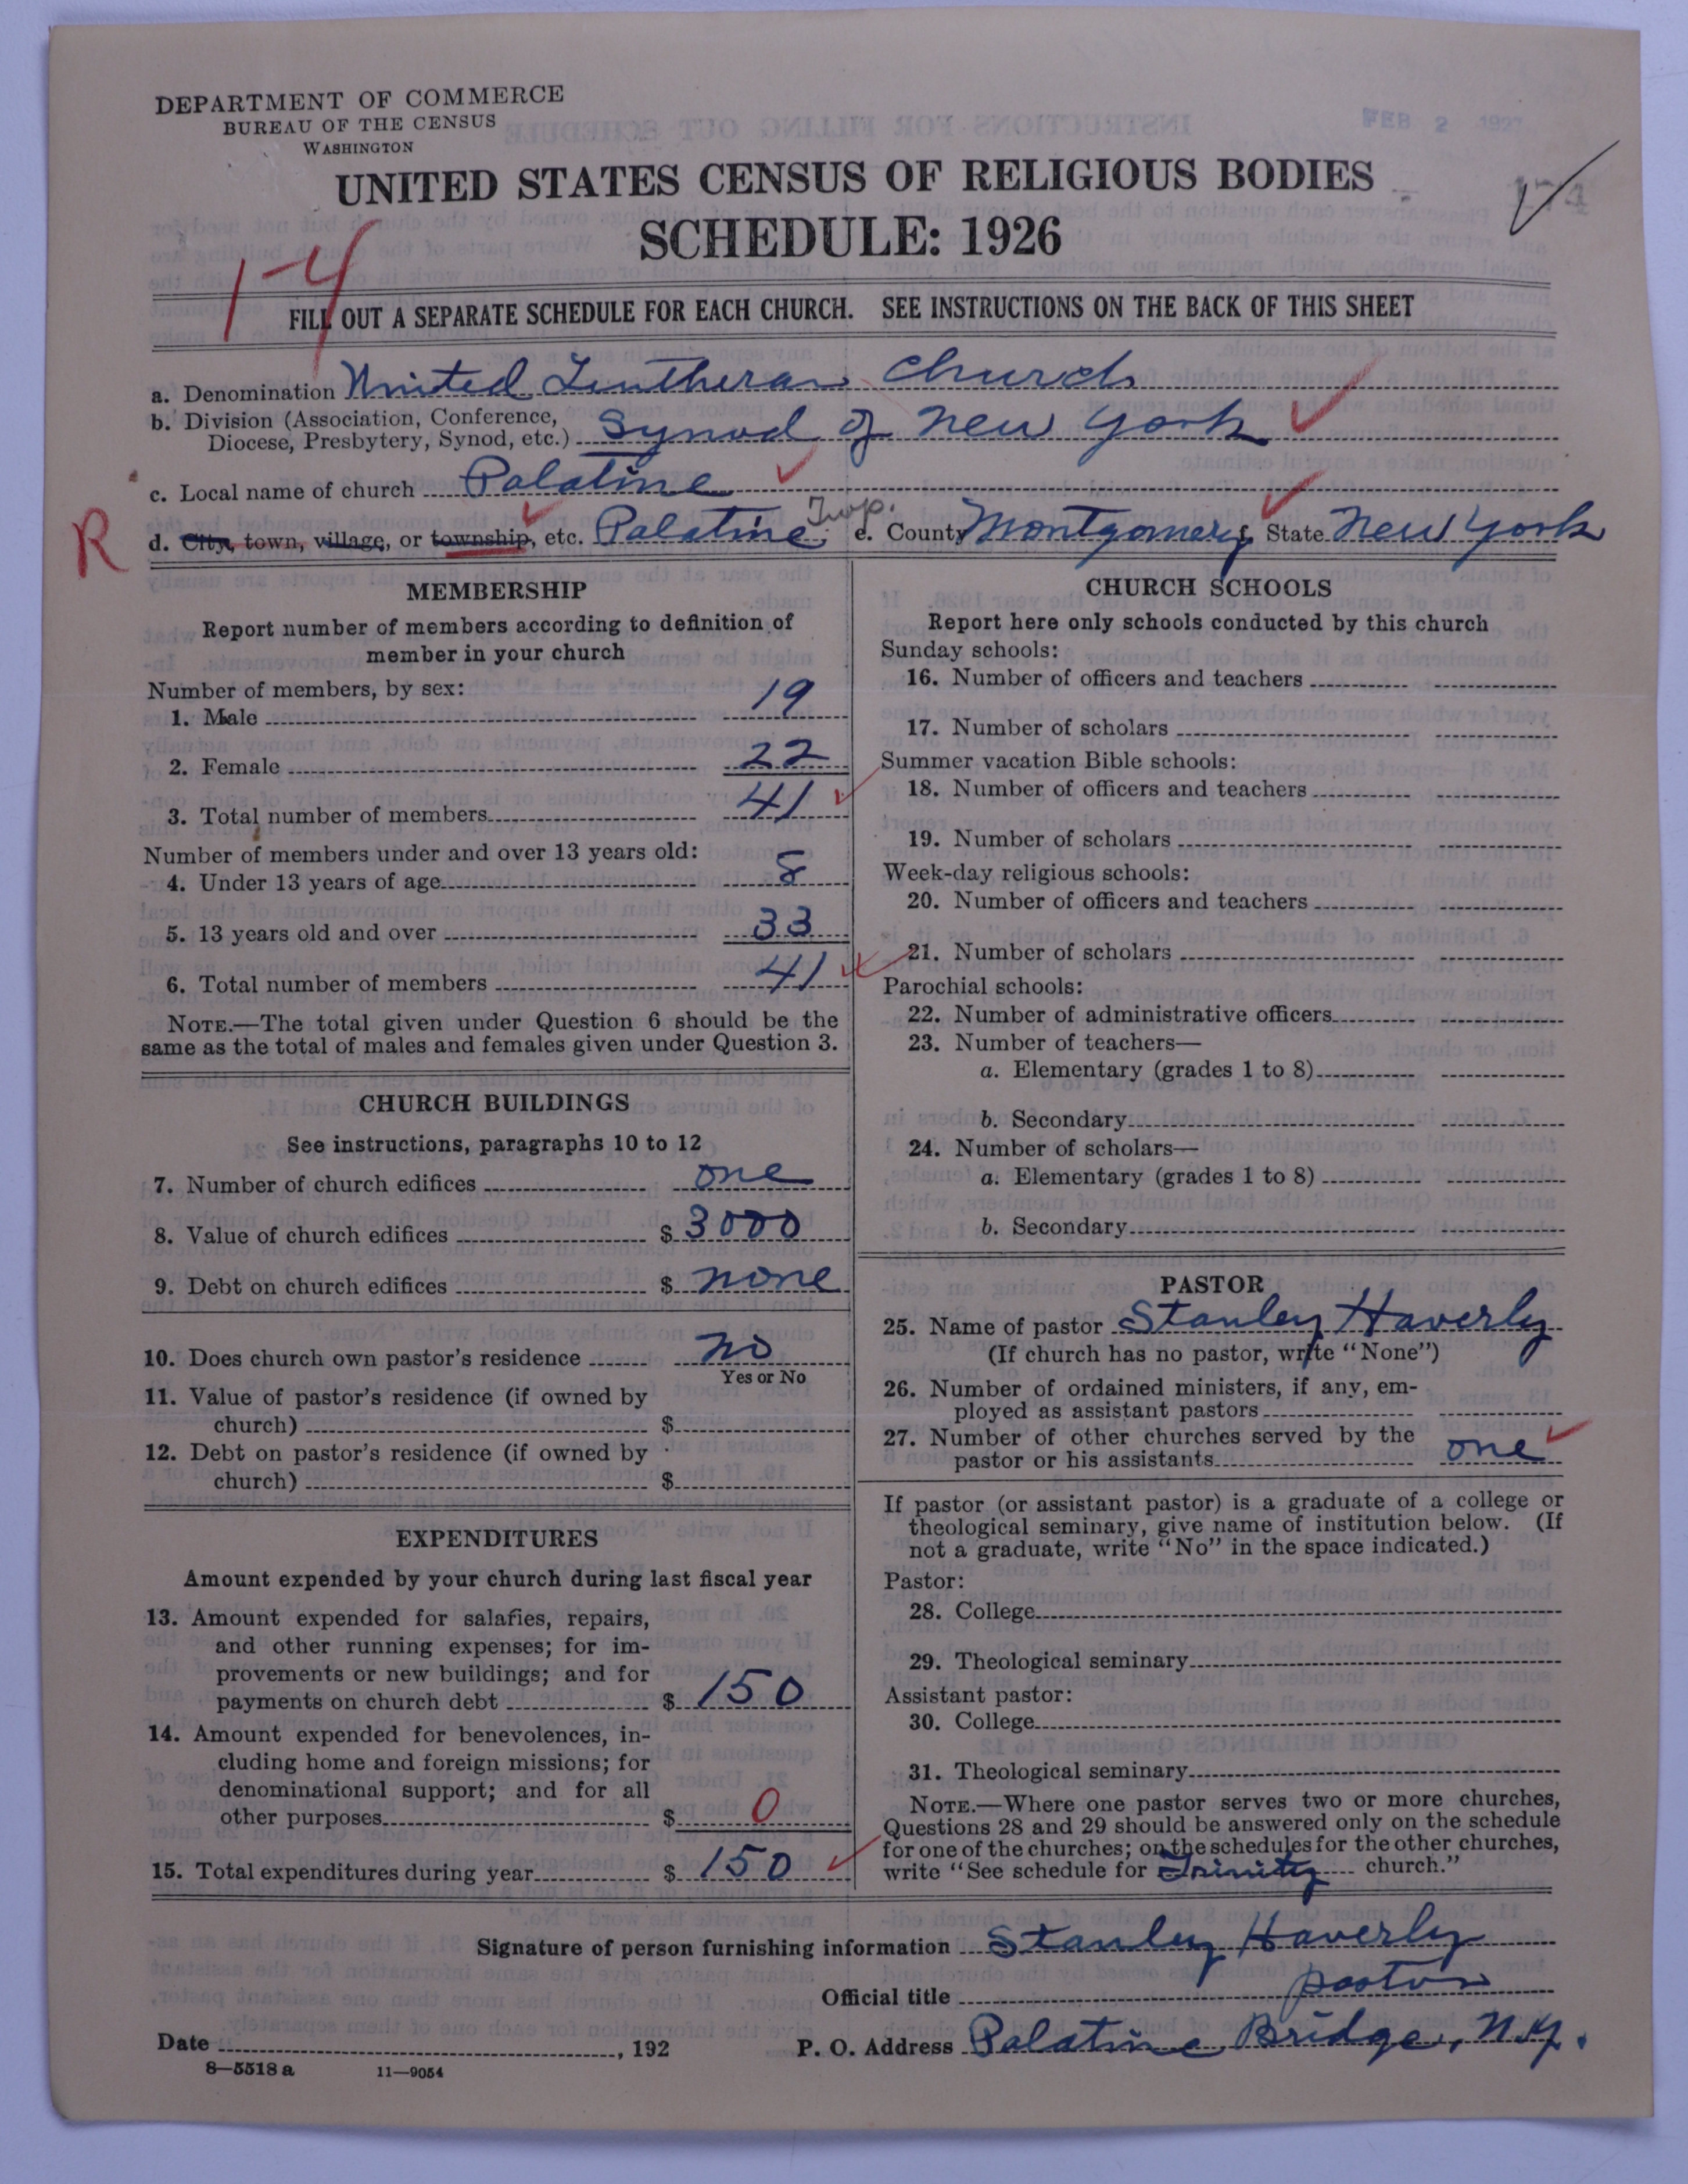 DEPARTMENT OF COMMERCE
BUREAU OF THE CENSUS
WASHINGTON
FEB 2 1927
UNITED STATES CENSUS OF RELIGIOUS BODIES
SCHEDULE: 1926
1-4
FILL OUT A SEPARATE SCHEDULE FOR EACH CHURCH. SEE INSTRUCTIONS ON THE BACK OF THIS SHEET
a. Denomination United Lutheran Church
b. Division (Association, Conference,
Diocese, Presbytery, Synod, etc.) Synod of New York
c. Local name of church Palatine
R d. City, town, village, or township, etc. Palatine Twp. e. County Montgomery State New York
MEMBERSHIP
Report number of members according to definition of
member in your church
Number of members, by sex:
1. Male 19
2. Female 22
3. Total number of members 41
Number of members under and over 13 years old:
4. Under 13 years of age 8
5. 13 years old and over 33
6. Total number of members 41
NOTE.—The total given under Question 6 should be the
same as the total of males and females given under Question 3.
CHURCH BUILDINGS
See instructions, paragraphs 10 to 12
7. Number of church edifices one
8. Value of church edifices $ 3000
9. Debt on church edifices $ none
10. Does church own pastor's residence no
Yes or No
11. Value of pastor's residence (if owned by
church) $
12. Debt on pastor's residence (if owned by
church) $
EXPENDITURES
Amount expended by your church during last fiscal year
13. Amount expended for salaries, repairs,
and other running expenses; for im-
provements or new buildings; and for
payments on church debt $ 150
14. Amount expended for benevolences, in-
cluding home and foreign missions; for
denominational support; and for all
other purposes $ 0
15. Total expenditures during year $ 150
CHURCH SCHOOLS
Report here only schools conducted by this church
Sunday schools:
16. Number of officers and teachers
17. Number of scholars
Summer vacation Bible schools:
18. Number of officers and teachers
19. Number of scholars
Week-day religious schools:
20. Number of officers and teachers
21. Number of scholars
Parochial schools:
22. Number of administrative officers
23. Number of teachers—
a. Elementary (grades 1 to 8)
b. Secondary
24. Number of scholars—
a. Elementary (grades 1 to 8)
b. Secondary
PASTOR
25. Name of pastor Stanley Haverly
(If church has no pastor, write "None")
26. Number of ordained ministers, if any, em-
ployed as assistant pastors
27. Number of other churches served by the
pastor or his assistants one
If pastor (or assistant pastor) is a graduate of a college or
theological seminary, give name of institution below. (If
not a graduate, write "No" in the space indicated.)
Pastor:
28. College
29. Theological seminary
Assistant pastor:
30. College
31. Theological seminary
NOTE.—Where one pastor serves two or more churches,
Questions 28 and 29 should be answered only on the schedule
for one of the churches; on the schedules for the other churches,
write "See schedule for Trinity church."
Signature of person furnishing information Stanley Haverly
Official title pastor
Date , 192
P. O. Address Palatine Bridge, N.Y.
8—5518 a 11—9054